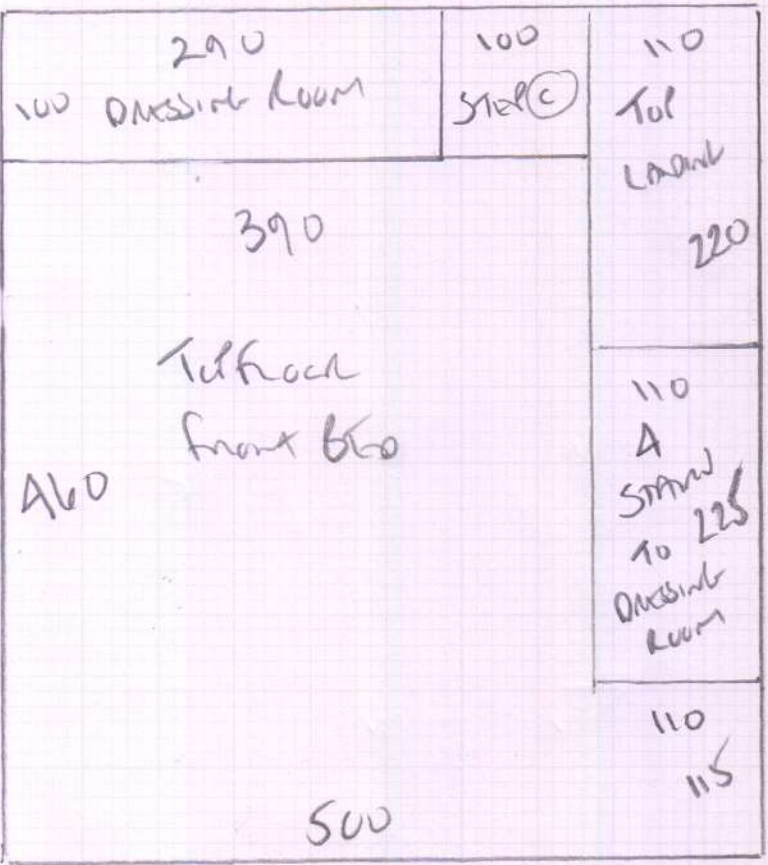 290
100 DRESSING ROOM
100
STEP C
110
TOP
LANDING
220
390
TOP FLOOR
FRONT BED
460
110
4
STAIRS
TO 225
DRESSING
ROOM
110
115
500